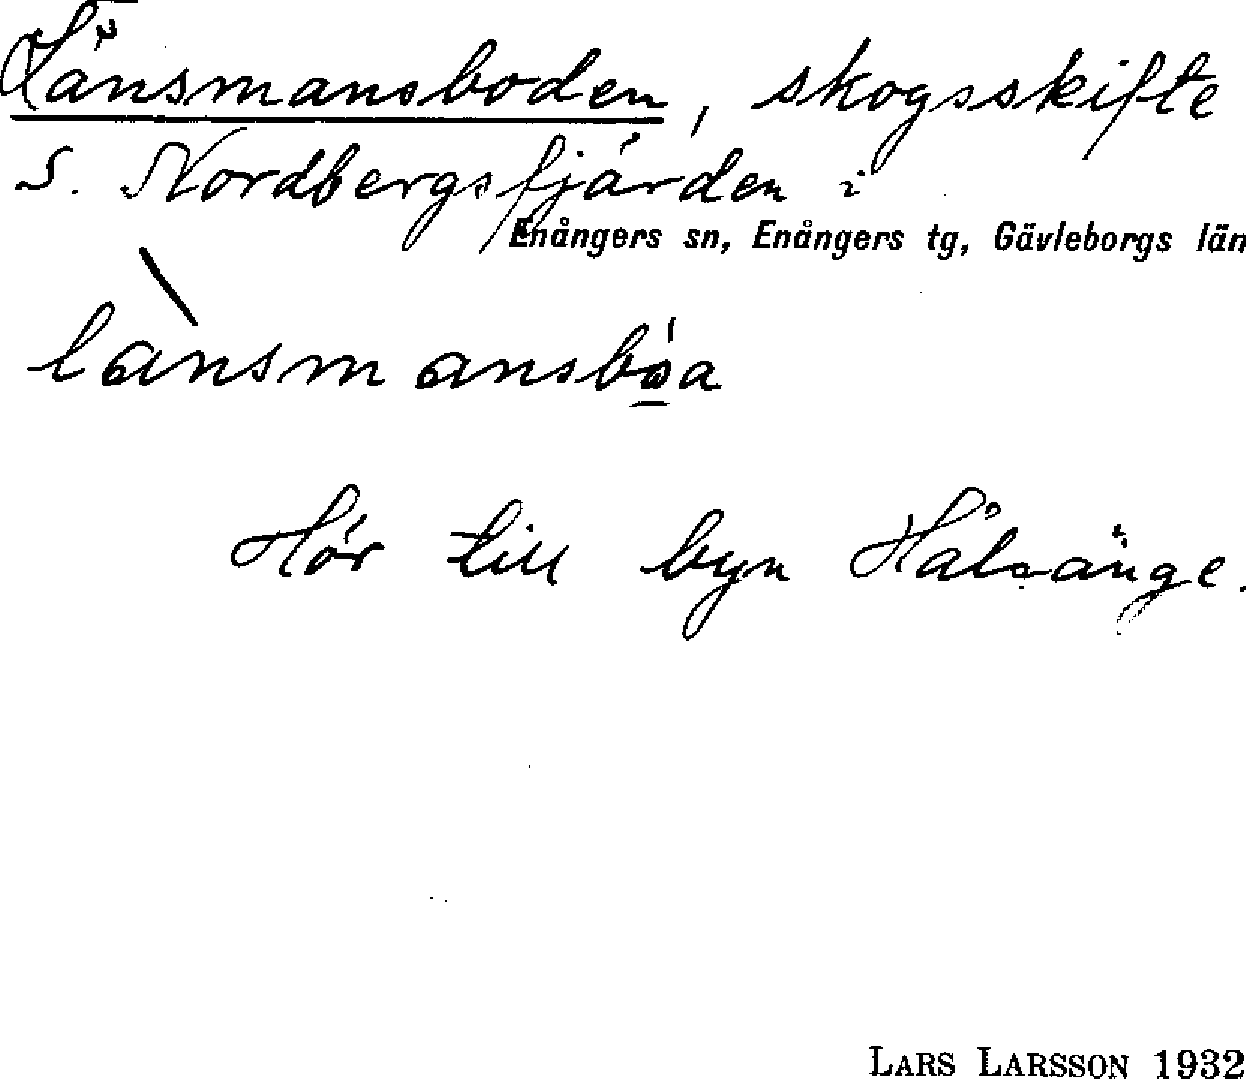 Länsmansboden, skogsskifte
S. Nordbergsfjärden i
Enångers sn, Enångers tg, Gävleborgs län
lànsmansbó̲a
Hör till byn Hålsänge.
LARS LARSSON 1932